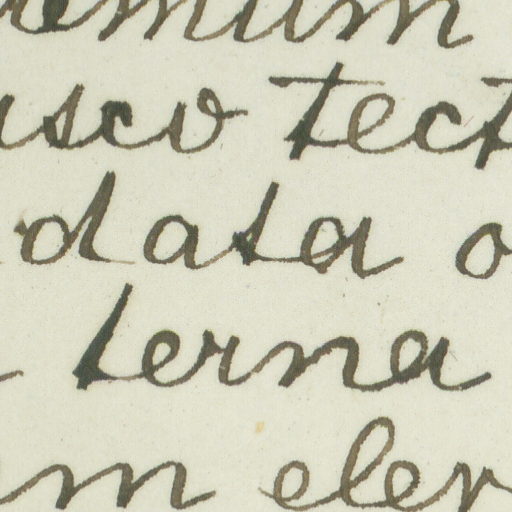 emum
usco tect
data o
terna
m eler